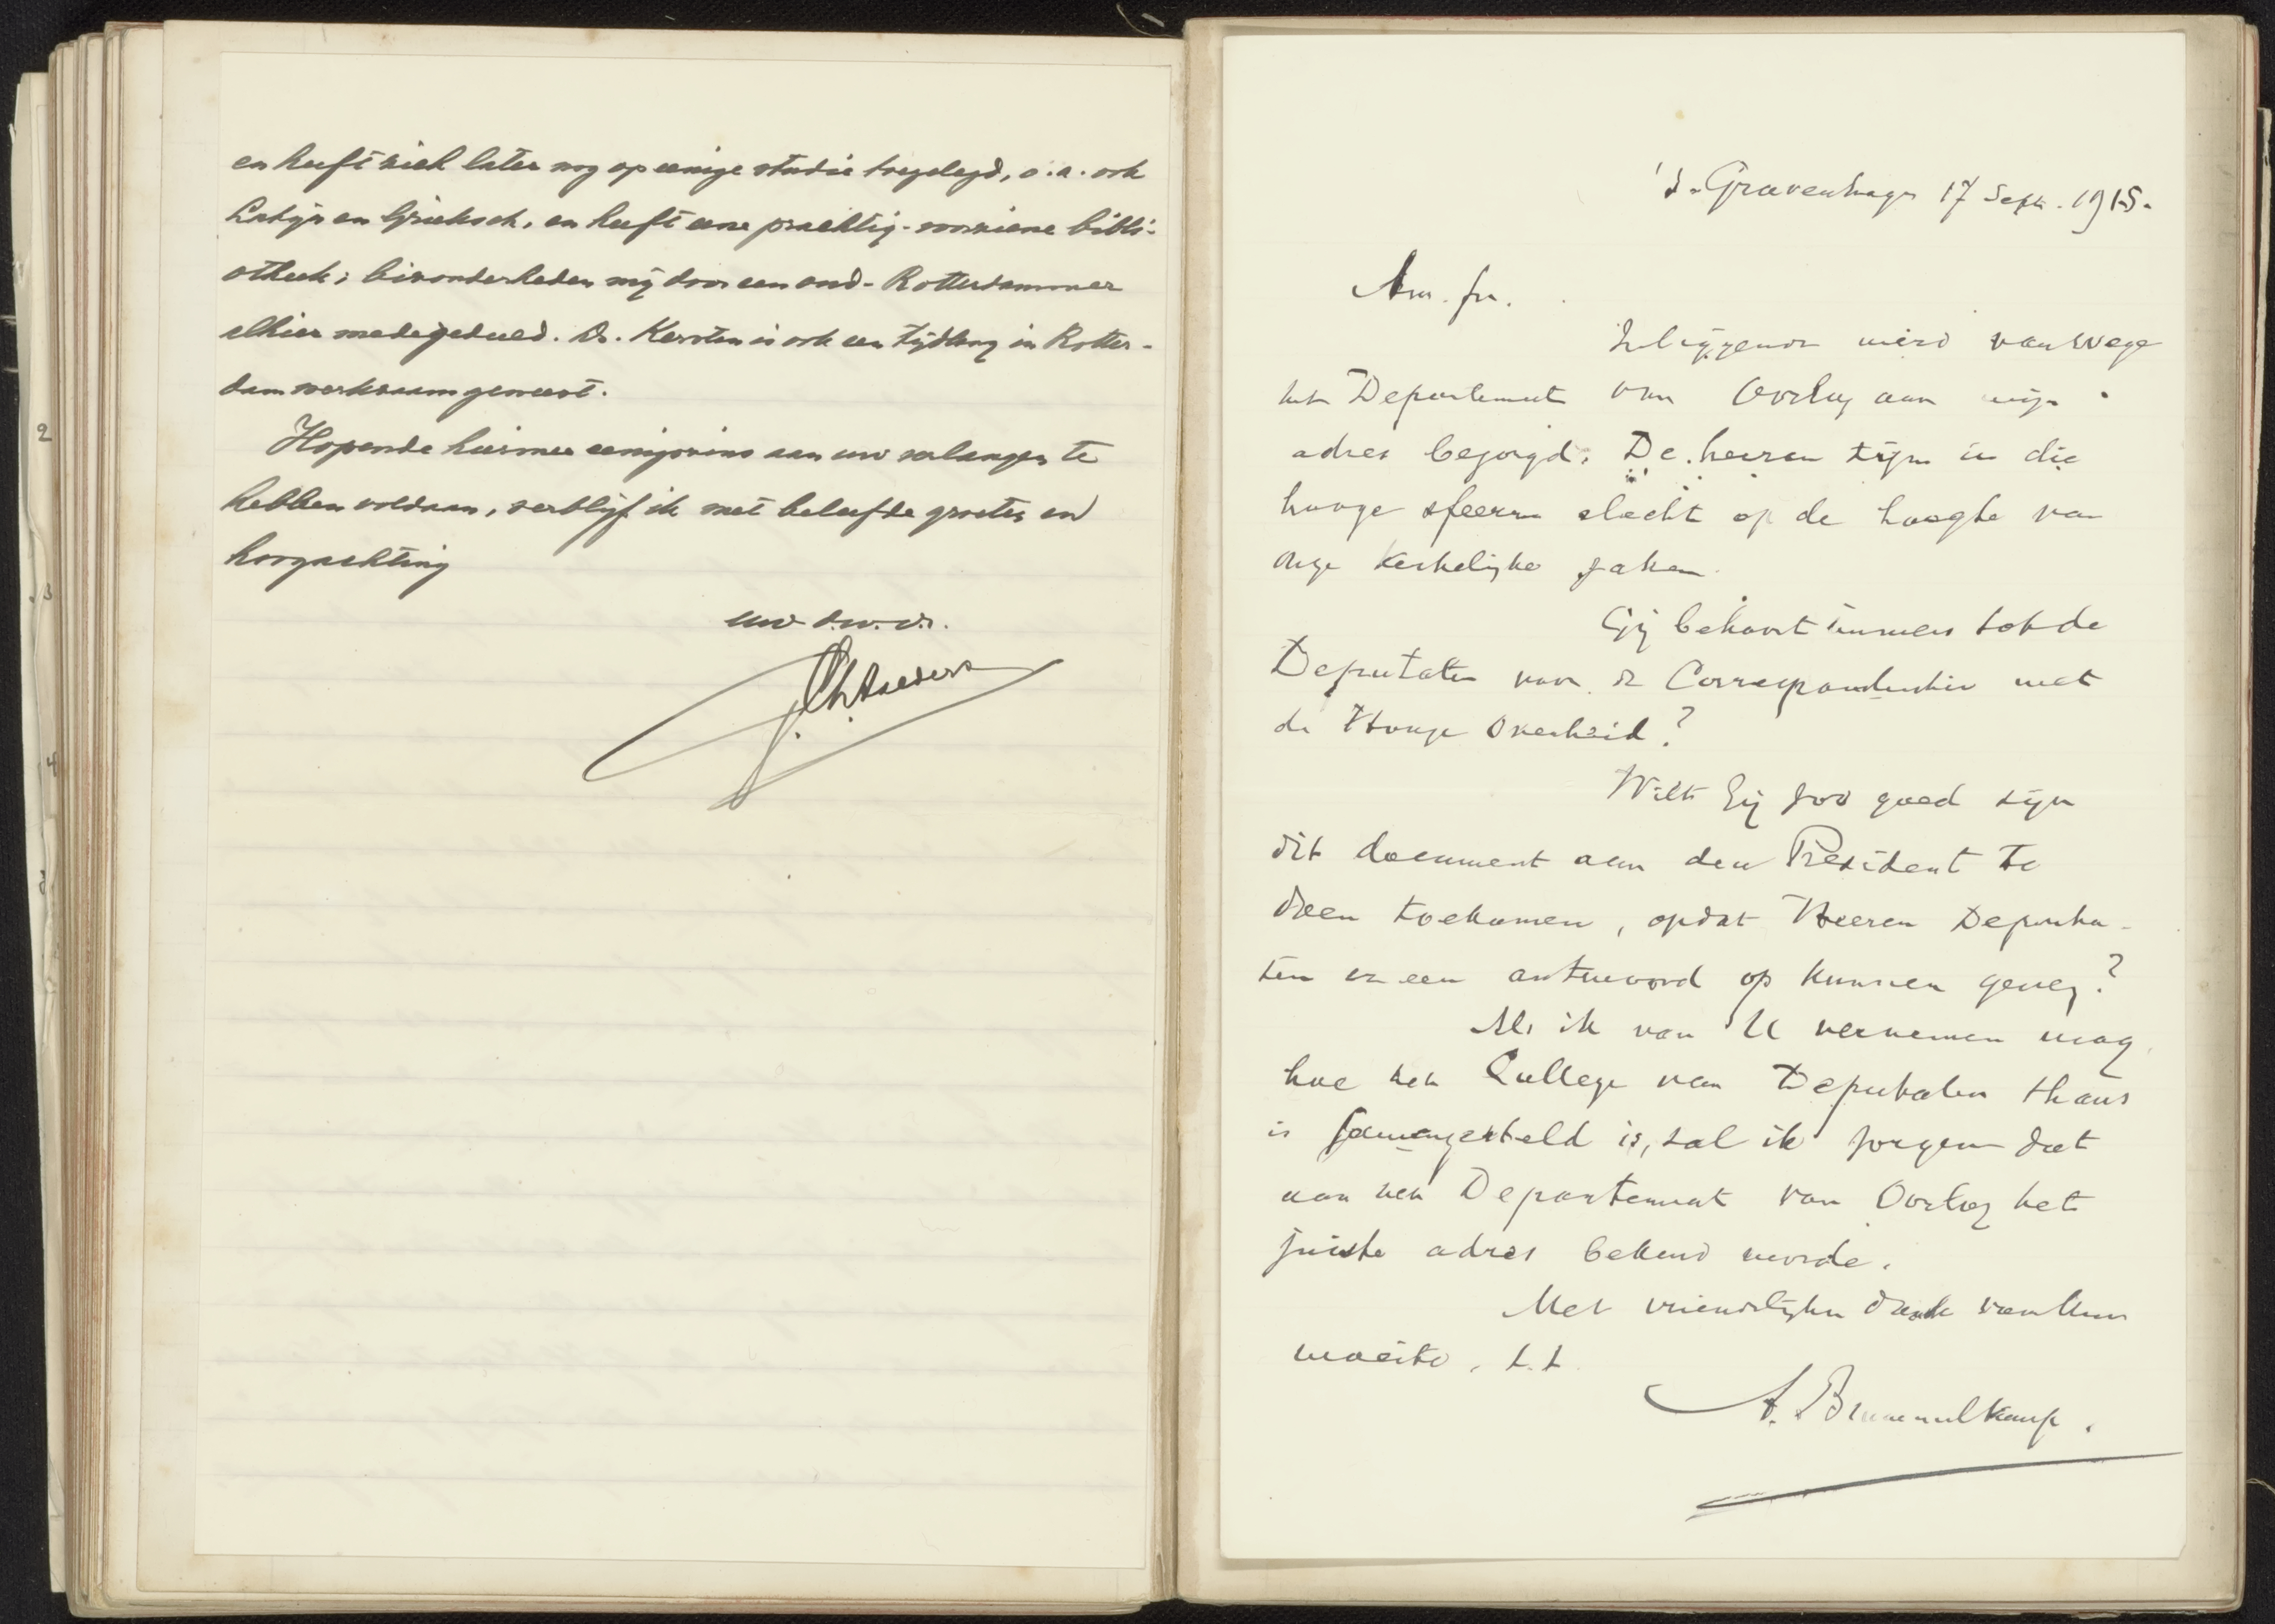 en heeft zich later nog op eenige studie toegelegd, o.a. ook
Latijn en Grieksch, en heeft eene prachtig-voorziene bibli-
otheek; bizonderheden mij door een oud-Rotterdammer
alhier medegedeeld. Ds. Kersten is ook een tijdlang in Rotter-
dam werkzaam geweest.
Hopende hiermee eenigszins aan uw verlangen te
hebben voldaan, verblijf ik met beleefde groeten en
hoogachting
uw d.w.dr.
2
3
4
's-Gravenhage 17 Sept. 1915.
Am. fr.
Inliggende werd vanwege
het Departement van Oorlog aan mijn
adres bezorgd. De heeren zijn in die
hooge sfeeren slecht op de hoogte van
onze kerkelijke zaken.
Gij behoort immers tot de
Deputaten voor de Correspondentie met
de Hooge Overheid?
Wilt Gij zoo goed zijn
dit document aan den President te
doen toekomen, opdat Heeren Deputa-
ten er een antwoord op kunnen geven?
Als ik van U vernemen mag
hoe het College van Deputaten thans
is samengesteld is, zal ik zorgen dat
aan het Departement van Oorlog het
juiste adres bekend worde.
Met vriendelijken dank van Uw
moeite, t.t.
A. Brummelkamp.